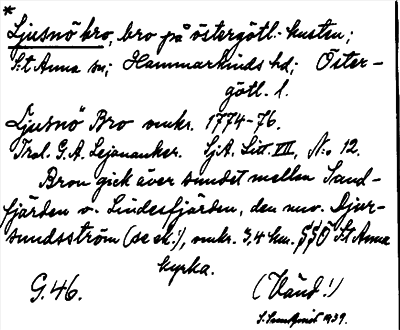 *
Ljusnö bro, bro på östergötl. kusten;
S:t Anna sn; Hammarkinds hd; Öster-
götl. l.
Ljusnö Bro omkr. 1774-76.
Trol. G.A. Lejonanker. SjA. Litt VII, N:o 12.
Bron gick över sundet mellan Sand-
fjärden o. Lindersfjärden, den nuv. Djur-
sundsström (se d:o), omkr. 3,4 km. SSÖ S:t Anna
kyrka.
G. 46. (Vänd!)
1939.